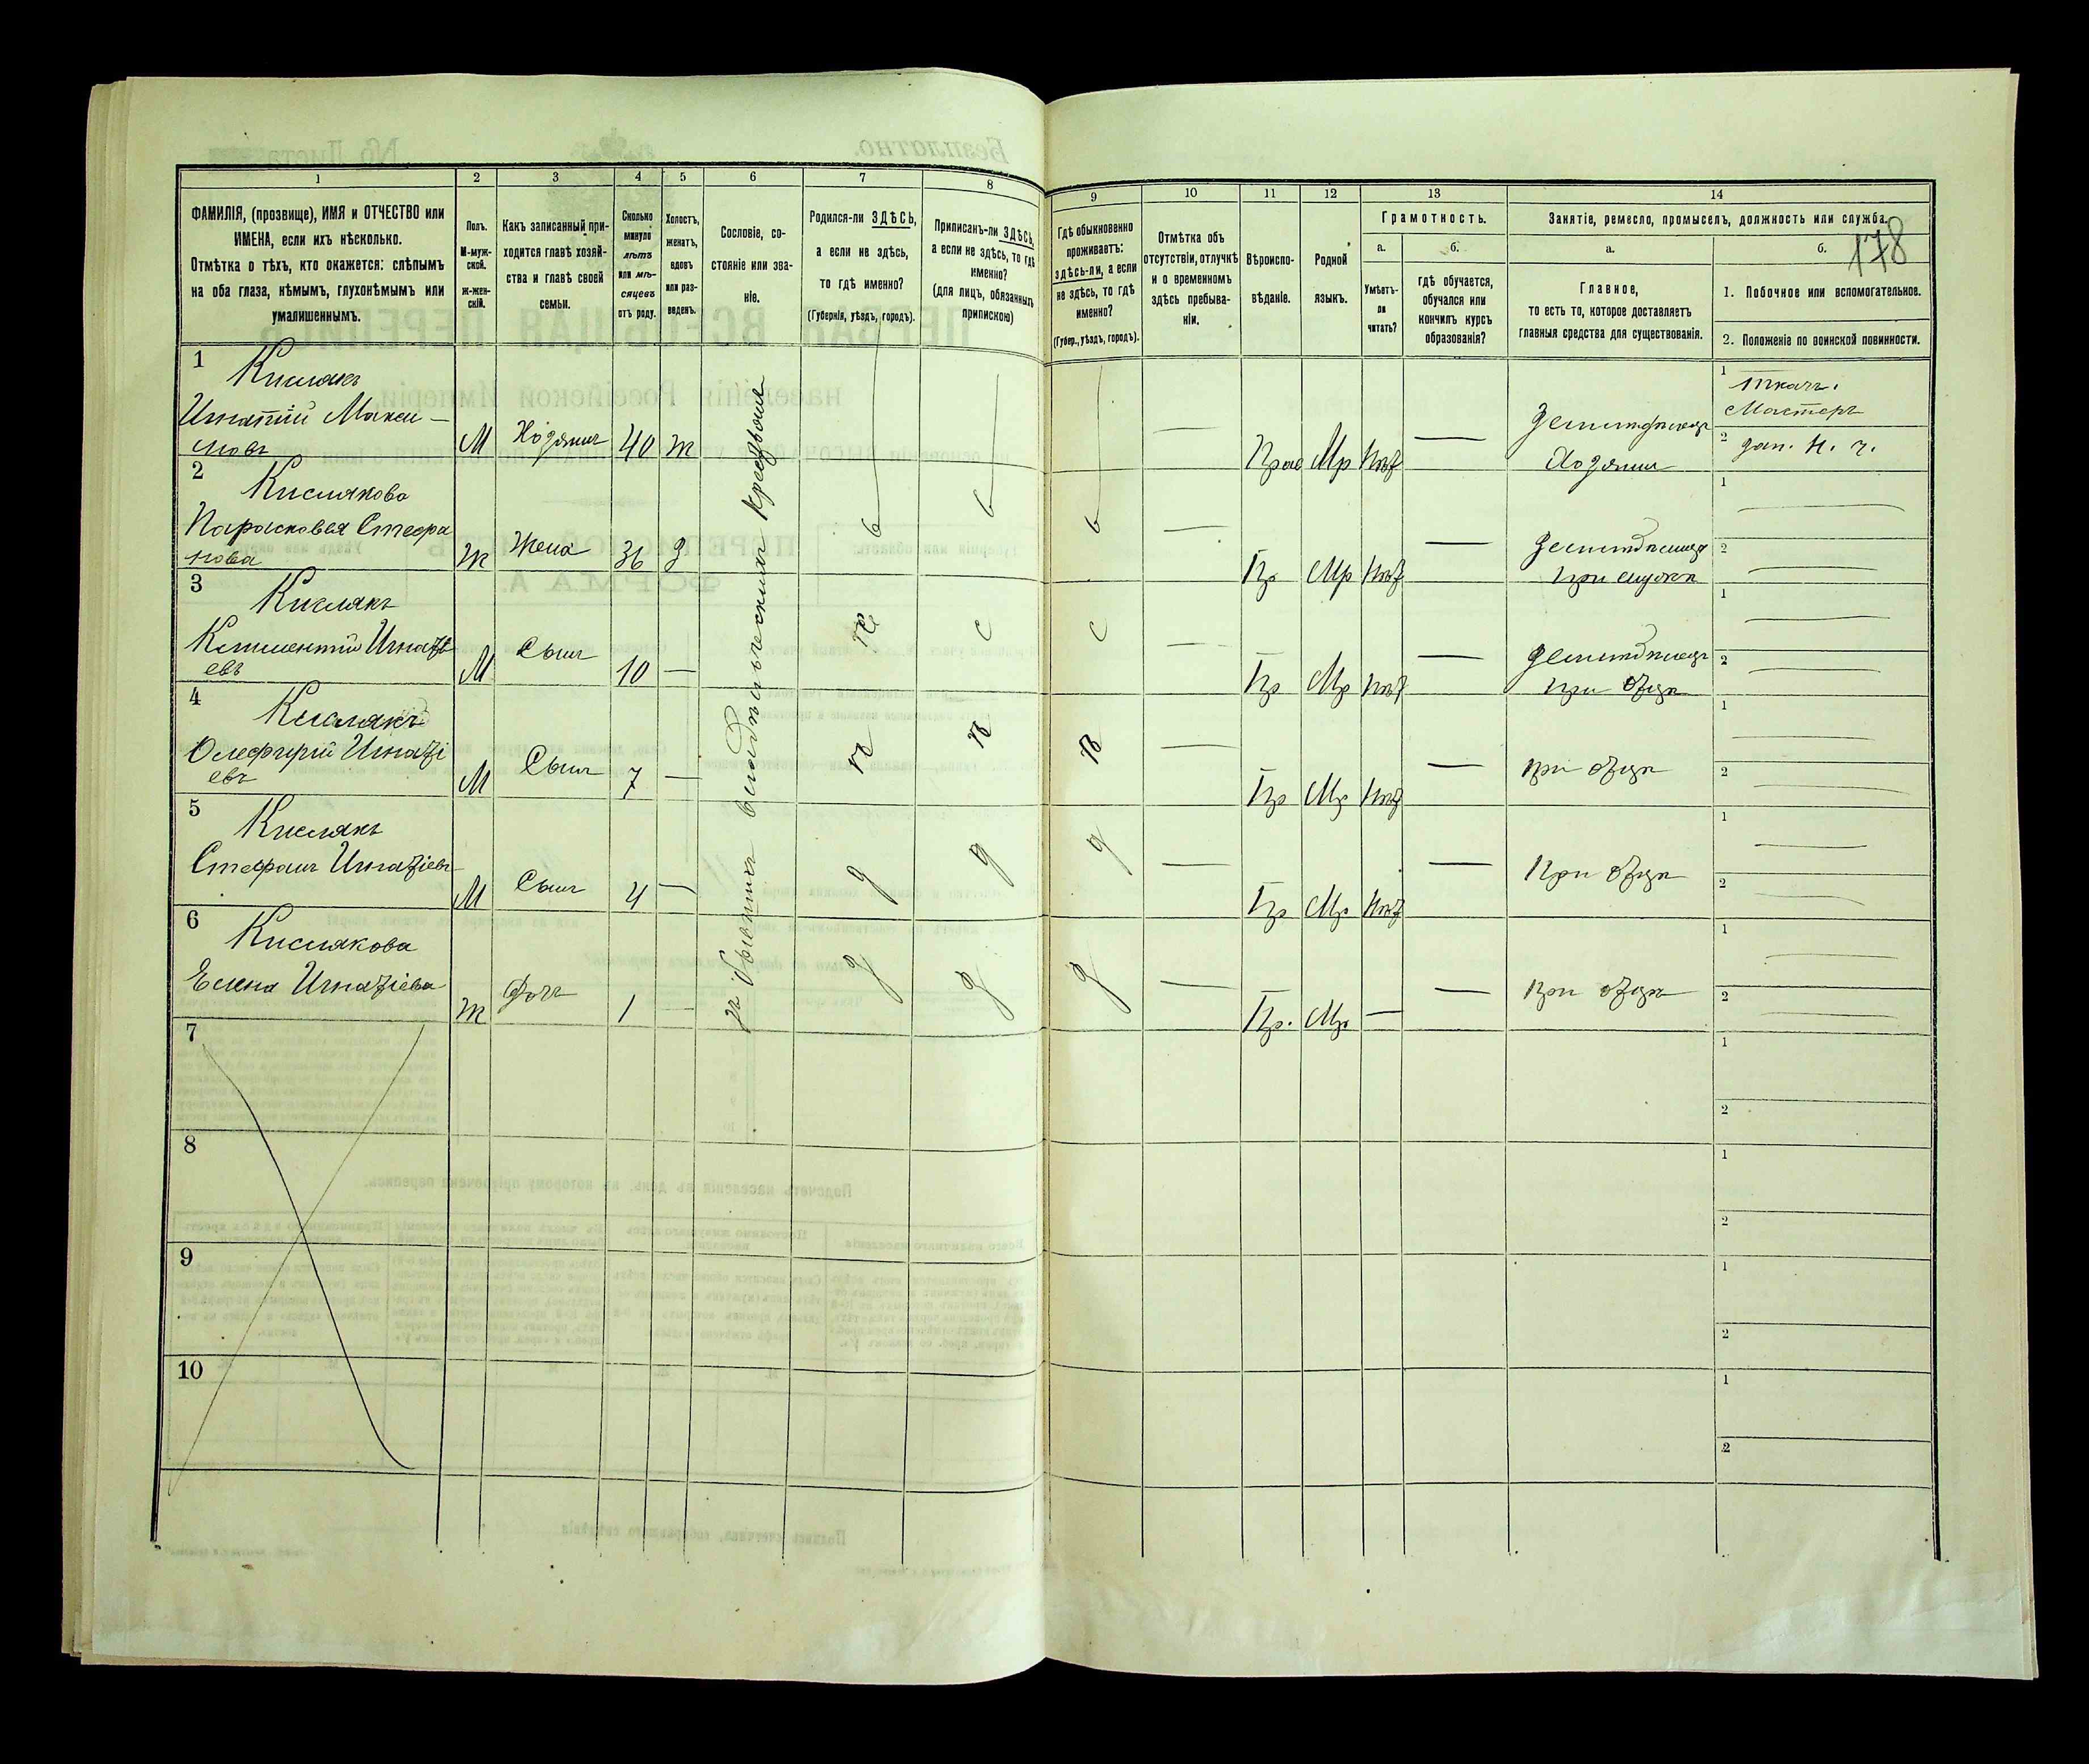 178
1
ФАМИЛІЯ, (прозвище), ИМЯ и ОТЧЕСТВО или
ИМЕНА, если ихъ нѣсколько.
Отмѣтка о тѣхъ, кто окажется: слѣпымъ
на оба глаза, нѣмымъ, глухонѣмымъ или
умалишеннымъ.
2
Полъ.
М-муж-
ской.
ж-жен-
скій.
3
Какъ записанный при-
ходится главѣ хозяй-
ства и главѣ своей
семьи.
4
Сколько
минуло
лѣтъ
или мѣ-
сяцевъ
отъ роду.
5
Холостъ,
женатъ,
вдовъ
или раз-
веденъ.
6
Сословіе, со-
стояніе или зва-
ніе.
7
Родился-ли ЗДѢСЬ,
а если не здѣсь,
то гдѣ именно?
(Губернія, уѣздъ, городъ).
8
Приписанъ-ли ЗДѢСЬ,
а если не здѣсь, то гдѣ
именно?
(для лицъ, обязанныхъ
припискою)
9
Гдѣ обыкновенно
проживаетъ:
здѣсь-ли, а если
не здѣсь, то гдѣ
именно?
(Губер., уѣздъ, городъ).
10
Отмѣтка объ
отсутствіи, отлучкѣ
и о временномъ
здѣсь пребыва-
ніи.
11
Вѣроиспо-
вѣданіе.
12
Родной
языкъ.
13
Грамотность.
а.
Умѣетъ-
ли
читать?
б.
гдѣ обучается,
обучался или
кончилъ курсъ
образованія?
14
Занятіе, ремесло, промыселъ, должность или служба.
а.
Главное,
то есть то, которое доставляетъ
главныя средства для существованія.
б.
1. Побочное или вспомогательное.
2. Положеніе по воинской повинности.
1
Кислякъ
Игнатій Макси-
мовъ
М
Хозяинъ
40
ж
Прав
Мр
Нѣт
Земледѣлецъ
Хозяинъ
1
ткачъ.
Мастеръ
2
зап. н. ч.
изъ бывшихъ владѣльческихъ крестьянъ
2
Кислякова
Парасковья Стефа
нова
Ж
Жена
36
з
Пр
Мр
Нѣт
Земледѣлица
при мужѣ
1
2
3
Кислякъ
Климентій Игнаті
евъ
М
Сынъ
10
Пр
Мр
Нѣт
Земледѣлецъ
при отцѣ
1
2
4
Кислякъ
Олефирій Игнаті
евъ
М
Сынъ
7
Пр
Мр
Нѣт
при отцѣ
1
2
5
Кислякъ
Стефанъ Игнатіевъ
М
Сынъ
4
Пр
Мр
Нѣт
При отцѣ
1
2
6
Кислякова
Елена Игнатіева
Ж
Дочь
1
Пр.
Мр
при отцѣ
1
2
7
1
2
8
1
2
9
1
2
10
1
2